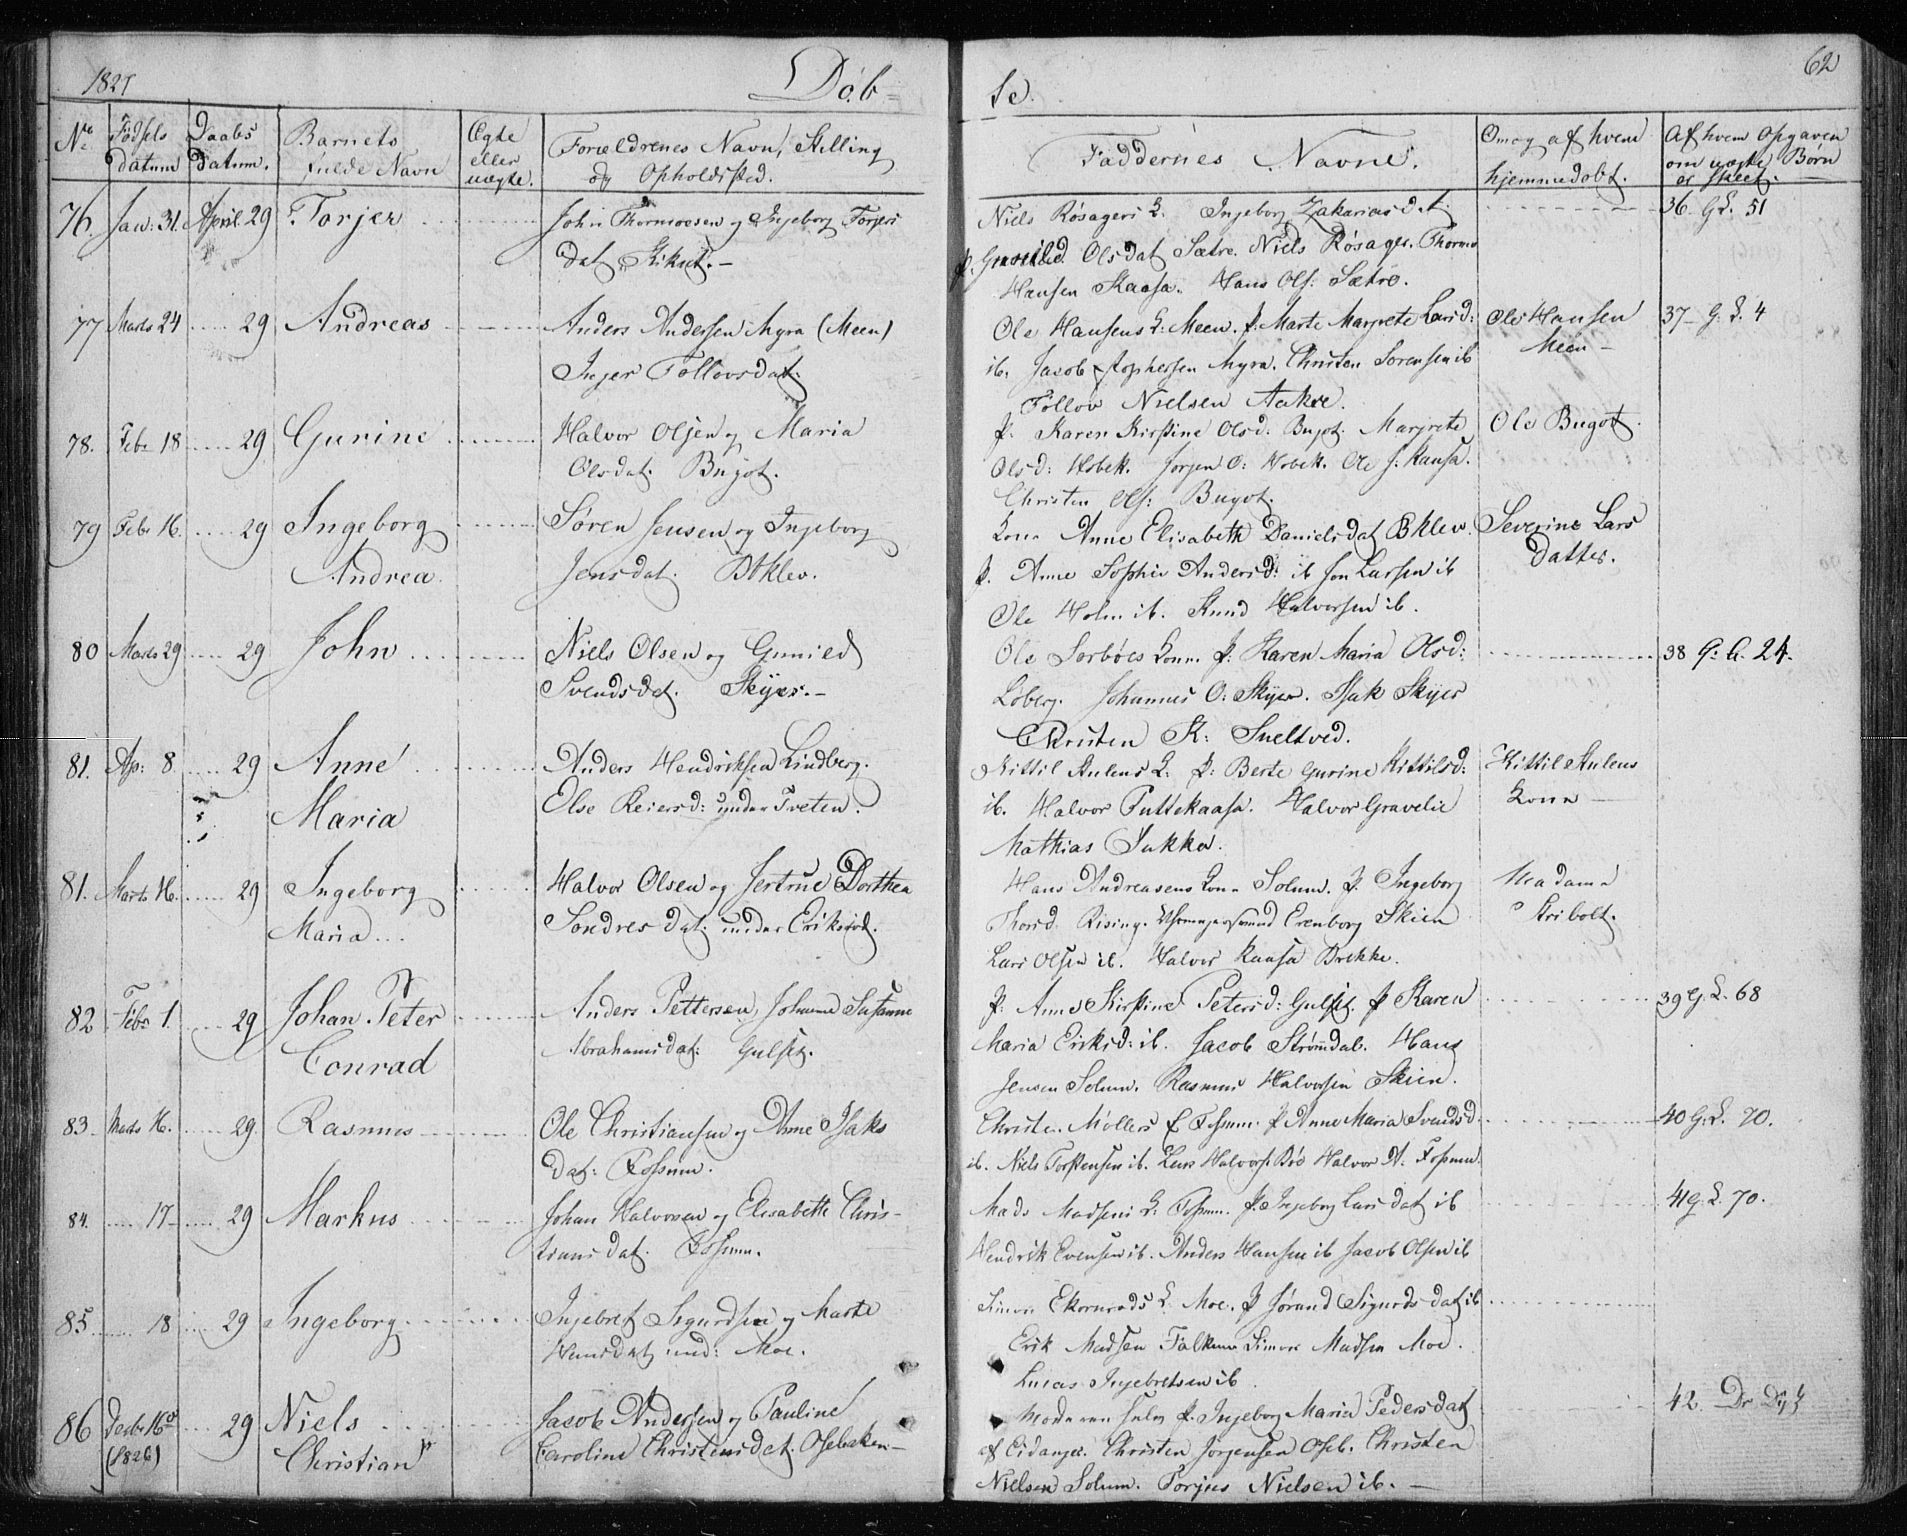 1827 Døb=
te. 62
No. Fødsels Daabs Barnets Ægte Forældrenes Navn, Stilling
datum datum. fulde Navn eller uægte. og Opholdsted.
Faddernes Navne. Om og af hvem hjemmedøbt. Af hvem Opgaven om uægte Børn er skeet.
76 Jan: 31. April 29 Torjer John Thormoesen og Ingeborg Torjers
dat
Niels Røsagers K. Ingeborg Zakariasdat 36. G. L. 51
P. Olsdat Sætre. Niels Røsager. Thormo
Hansen Kaasa. Hans Ols: Sætre.
77 Marts 24 29 Andreas Anders Andersen Myra (Meen)
Injer Tollovsdat
Ole Hansens K: Meen. P: Marte Margrete Larsd: Ole Hansen 37- G. L. 4
ib. Jacob Myra. Christen Sørensen ib Meen -
Tollov Nielsen Aakre.
78. Febr 18 29 Gurine Halvor Olsen og Maria
Olsdat. Bugot.
P. Karen Kirstine Olsd: Bugot. Margrete Ole Bugot.
Olsd: Hobek. Jørgen O: Hobek. Ole J: Kaasa.
Christen Ols: Bugot.
79 Febr 16. 29 Ingeborg Søren Jensen og Ingeborg
Andrea. Jensdat. Bøklev.
Kone Anne Elisabeth Danielsdat Bklev. Severine Lars
P. Anne Sophie Andersd: ib Jon Larsen ib Datter.
Ole Holm ib. Knud Halvorsen ib.
80 Marts 29 29 John Niels Olsen og Gunild
Svendsdat. Skyer. -
Ole Sørbøes Kone. P: Karen Maria Olsd: 38 G: L. 24.
Loberg. Johannes O: Skyer. Isak Skyer
Christen K: Sneltved.
81. Ap: 8. 29 Anne Anders Hendriksen Lindberg.
Maria Else Reiersd: under Tveten.
Kittil Aulens K. P: Berte Gurine Kittilsd: Kittil Aulens
ib. Halvor Puttekaasa. Halvor Gravelie Kone -
Mathias
81. Marts 16. 29 Ingeborg Halvor Olsen og Jertrue Dorthea
Maria... Sondresdat: under Eriksrød.
Hans Andreasens Kone Solum. P. Ingeborg Madame
Thorsd. Rising. Erenborg Skien Stribolt.
Lars Olsen ib. Halvor Kaasa Brekke.
82 Febr 1. 29 Johan Peter Anders Pettersen, Johanne Susanne
Conrad Abrahamsdat: Gulset.
P: Anne Kirstine Petersd: Gulset. P Karen 39 G. L. 68
Maria Eriksd: ib. Jacob Strømdal. Hans
Jensen Solum. Rasmus Halvorsen Skien.
83. Marts 16. 29 Rasmus Ole Christiansen og Anne Isaks
dat: Fossum.
Christen Møllers K Fossum. P Anne Maria Svendsd. 40 G. L. 70.
ib. Niels Torstensen ib. Lars Halvors: Bøe Halvor A: Fossum.
84. 17 29 Markus Johan Halvorsen og Elisabeth Chris-
tiansdat. Fossum.
Mads Madsens K: Fossum. P. Ingeborg Larsdat ib 41 G. L. 70.
Hendrik Evensen ib. Anders Hansen ib Jacob Olsen ib
85 18 29 Ingeborg Ingebret Sigurdsen og Marte
Hansdat und: Moe.
Simon K. Moe. P Jørand Sigurdsdat ib
Erik Madsen Falkum Simon Madsen Moe.
Lucas Ingebretsen ib.
86 Decbr 16de 29 Niels Jacob Andersen og Pauline
(1826) Christian Caroline Christensdat. Osebaken -
P. Ingeborg Maria Pedersdat 42.
af Eidanger. Christen Jørgensen Oseb. Christen
Nielsen Solum. Torjus Nielsen ib. -